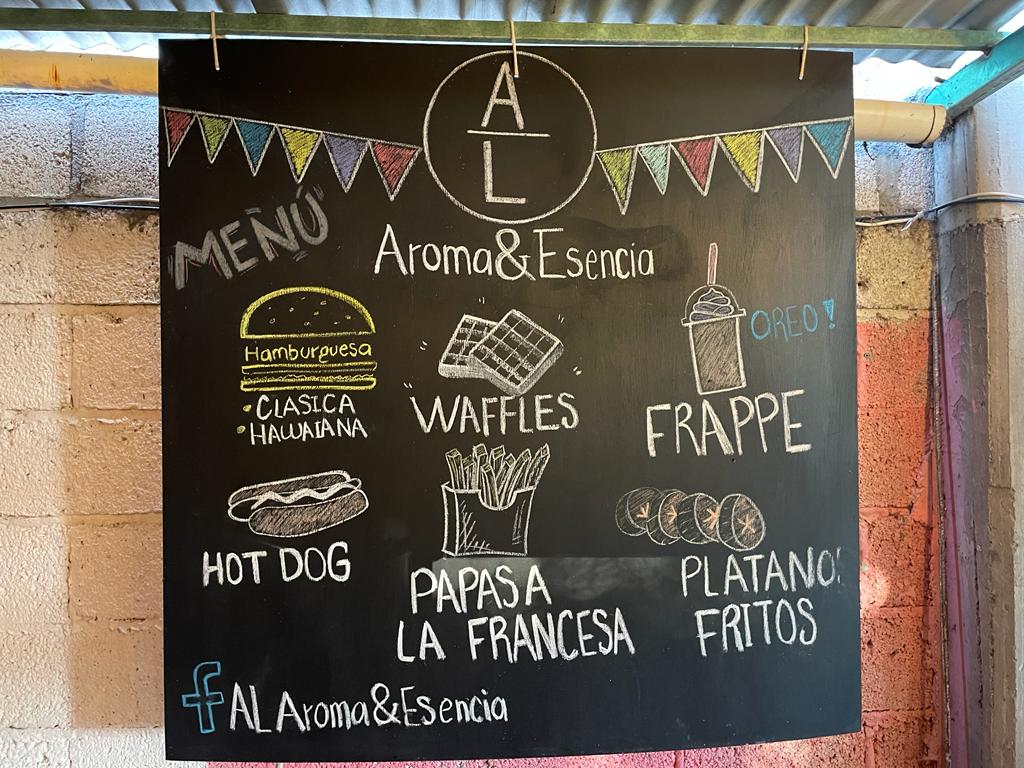 A
L
"MENÚ"
Aroma&Esencia
Hamburguesa
• CLASICA
• HAWAIANA
WAFFLES
OREO!
FRAPPE
HOT DOG
PAPAS A
LA FRANCESA
PLATANOS
FRITOS
f AL Aroma&Esencia